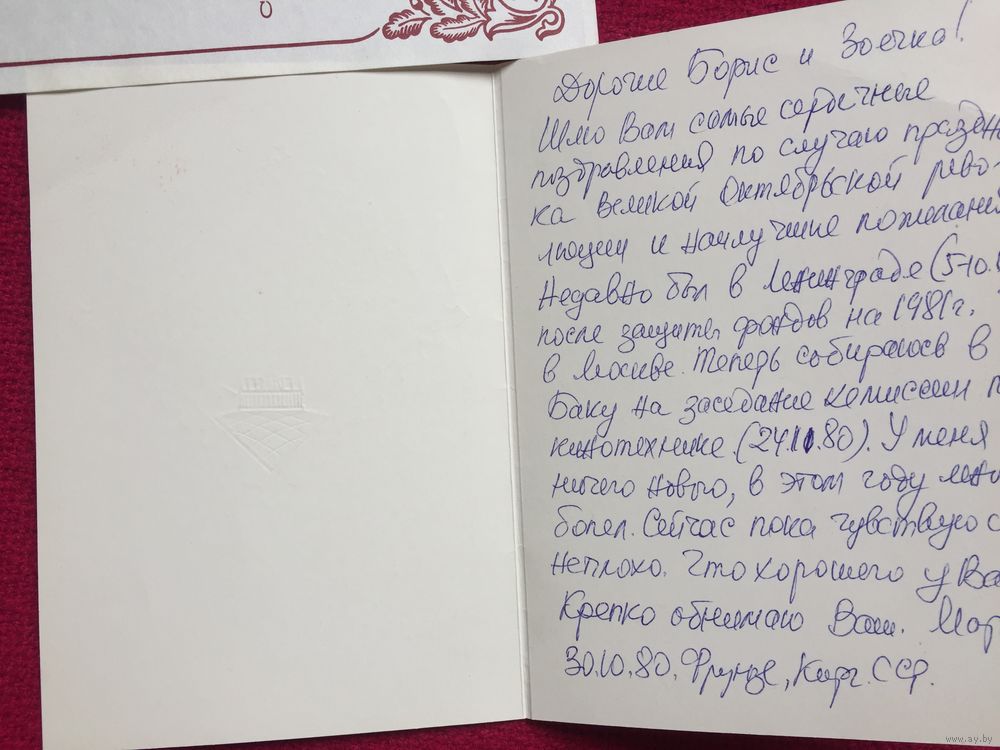 Дорогие Борис и Зоечка!
Шлю Вам самые сердечные
поздравления по случаю праздн
ка Великой Октябрьской рево-
люции и наилучшие пожелани
Недавно был в Ленинграде (5-10.
после защиты фондов на 1981г.
в Москве. Теперь собираюсь в
Баку на заседание комиссии п
кинотехнике (24.11.80). У меня
ничего нового, в этом году мно
болел. Сейчас пока чувствую с
неплохо. Что хорошего у Ва
Крепко обнимаю Ваш. Мар
30.10.80. Фрунзе, Кирг. ССР.
www.ay.by